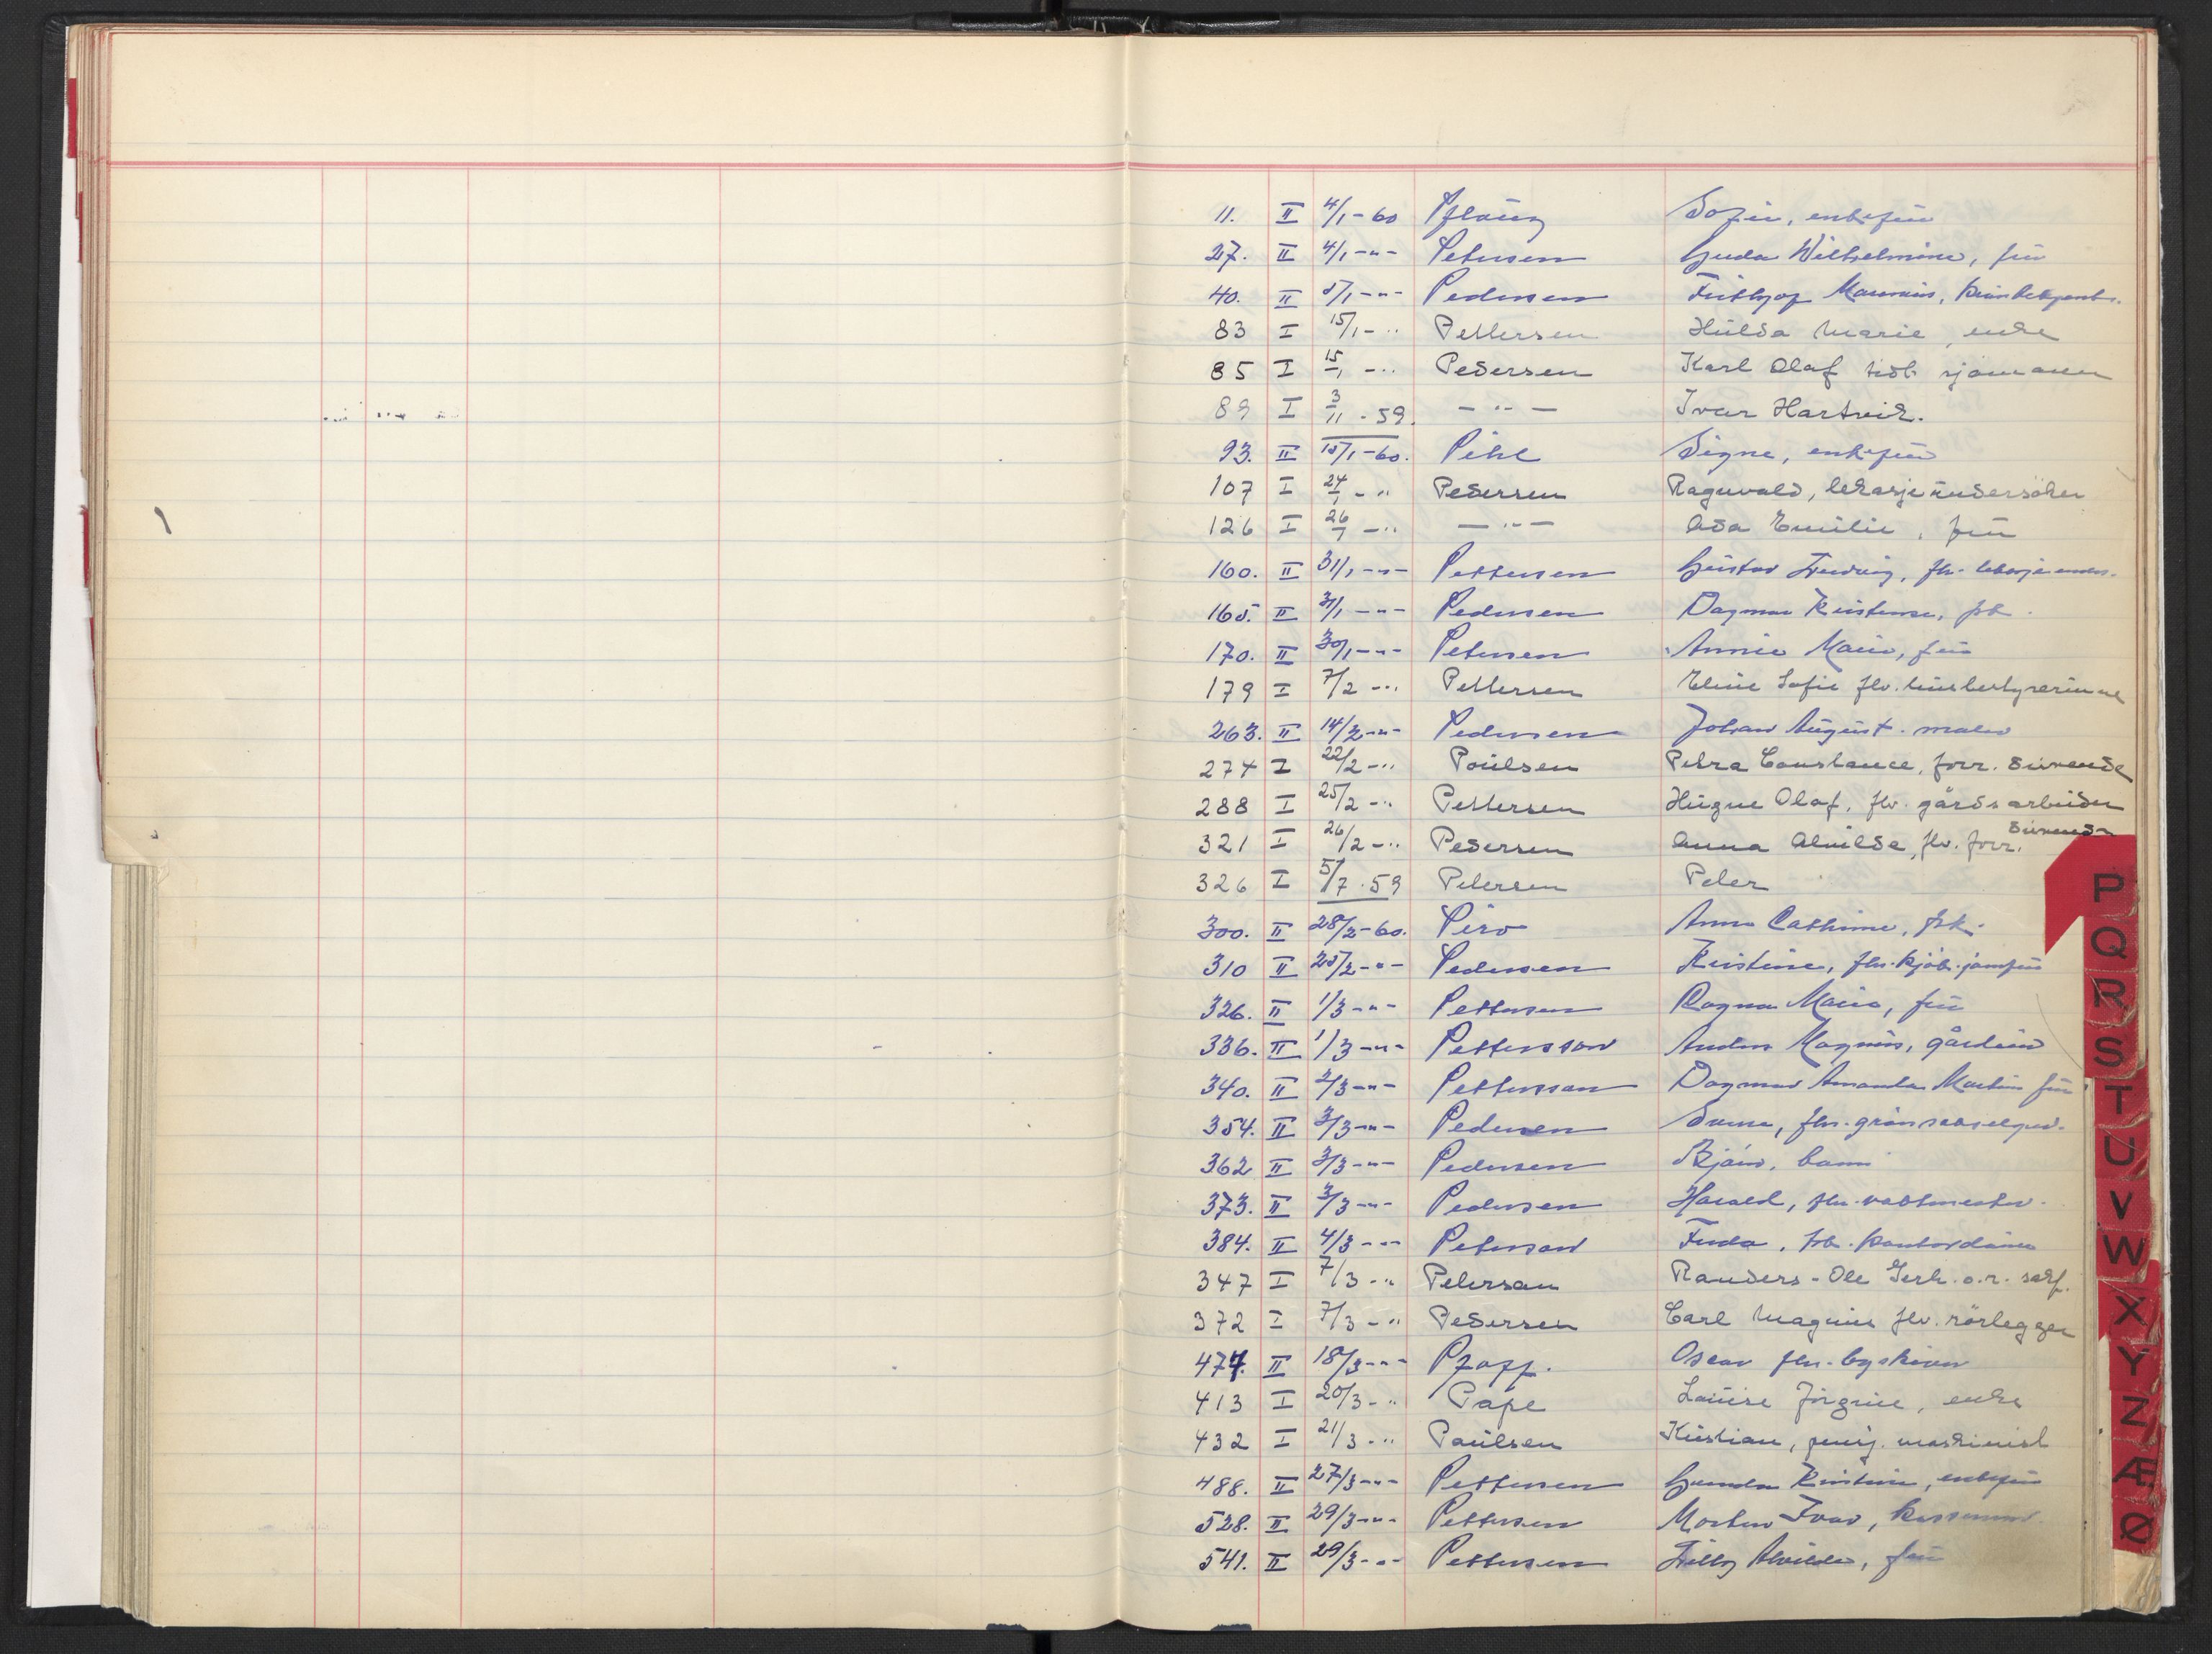 11. II 4/1-60 Pflaüg Sofie, enkefrü
27. II 4/1-"- Petersen Guda Wilhelmine, frü
40. II 5/1-"- Pedersen Frithjof Maurius,
83 I 15/1-" Pettersen Hülda Marie, enke
85 I 15/1-" Pedersen Karl Olaf tidl. sjömann
89 I 3/11-59. -"- Ivar Hartvik.
93. II 15/1-60. Pihl Signe, enkefrü
107 I 24/1-" Pedersen Ragnvald, lekasjeündersöker
126 I 26/1-" -"- Asa Emilie, frü
160. II 31/1-"- Pettersen Güstav Ludvig, fhv. lekasjeunders.
165. II 31/1-"- Pedersen Dagmar Kristense, frk.
170. II 30/1-"- Petersen Annie Marie, frü
179 I 7/2-" Pettersen Eline Sofie flv. hüsbestyrerinne
263. II 14/2-"- Pedersen Johan Aügüst. maler
274 I 22/2-" Poülsen Petra Constance, forr. drivende
288 I 25/2-" Pettersen Hügne Olaf, flv. gårdsarbeider
321 I 26/2-" Pedersen Anna Alvilde, flv. forr. drivende
326 I 5/7.59 Petersen Peter
300. II 28/2-60. Piro Anna Cathrine, frk.
310 II 25/2-"- Pedersen Kristine, fhv. kjøk.jomfrü
326. II 1/3-"- Pettersen Ragna Marie, frü
336. II 1/3-"- Pettersson Anders Magnüs, gårdeier
340. II 2/3-"- Pettersson Dagmar Amanda Martine frü
354. II 3/3-"- Pedersen fhv.
362 II 3/3-"- Pedersen Bjørn, barn
373. II 3/3-"- Pedersen Harald, fhv. vaktmester.
384. II 4/3-"- Peterson Frida, frk. kontordame
347 I 7/3-" Petersan Randers-Ole Gerh. o.r. sakf.
372 I 7/3-" Pedersen Carl Magnus flv. rörlegger
474. II 18/3-"- Pfaff. Oscar fhv. byskriver
413 I 20/3-" Pape Loüise Jörgine, enke
432 I 21/3-" Paülsen Kristian, pensj. maskinist
488. II 27/3-"- Pettersen Gunda Kristine, enkefrü
528. II 29/3-"- Pettersen Morten Ivar, kasserer
541. II 29/3-"- Pettersen Lilly Alvilde, frü
P
Q
R
S
T
U
V
W
X
Y
Z
Æ
Ø